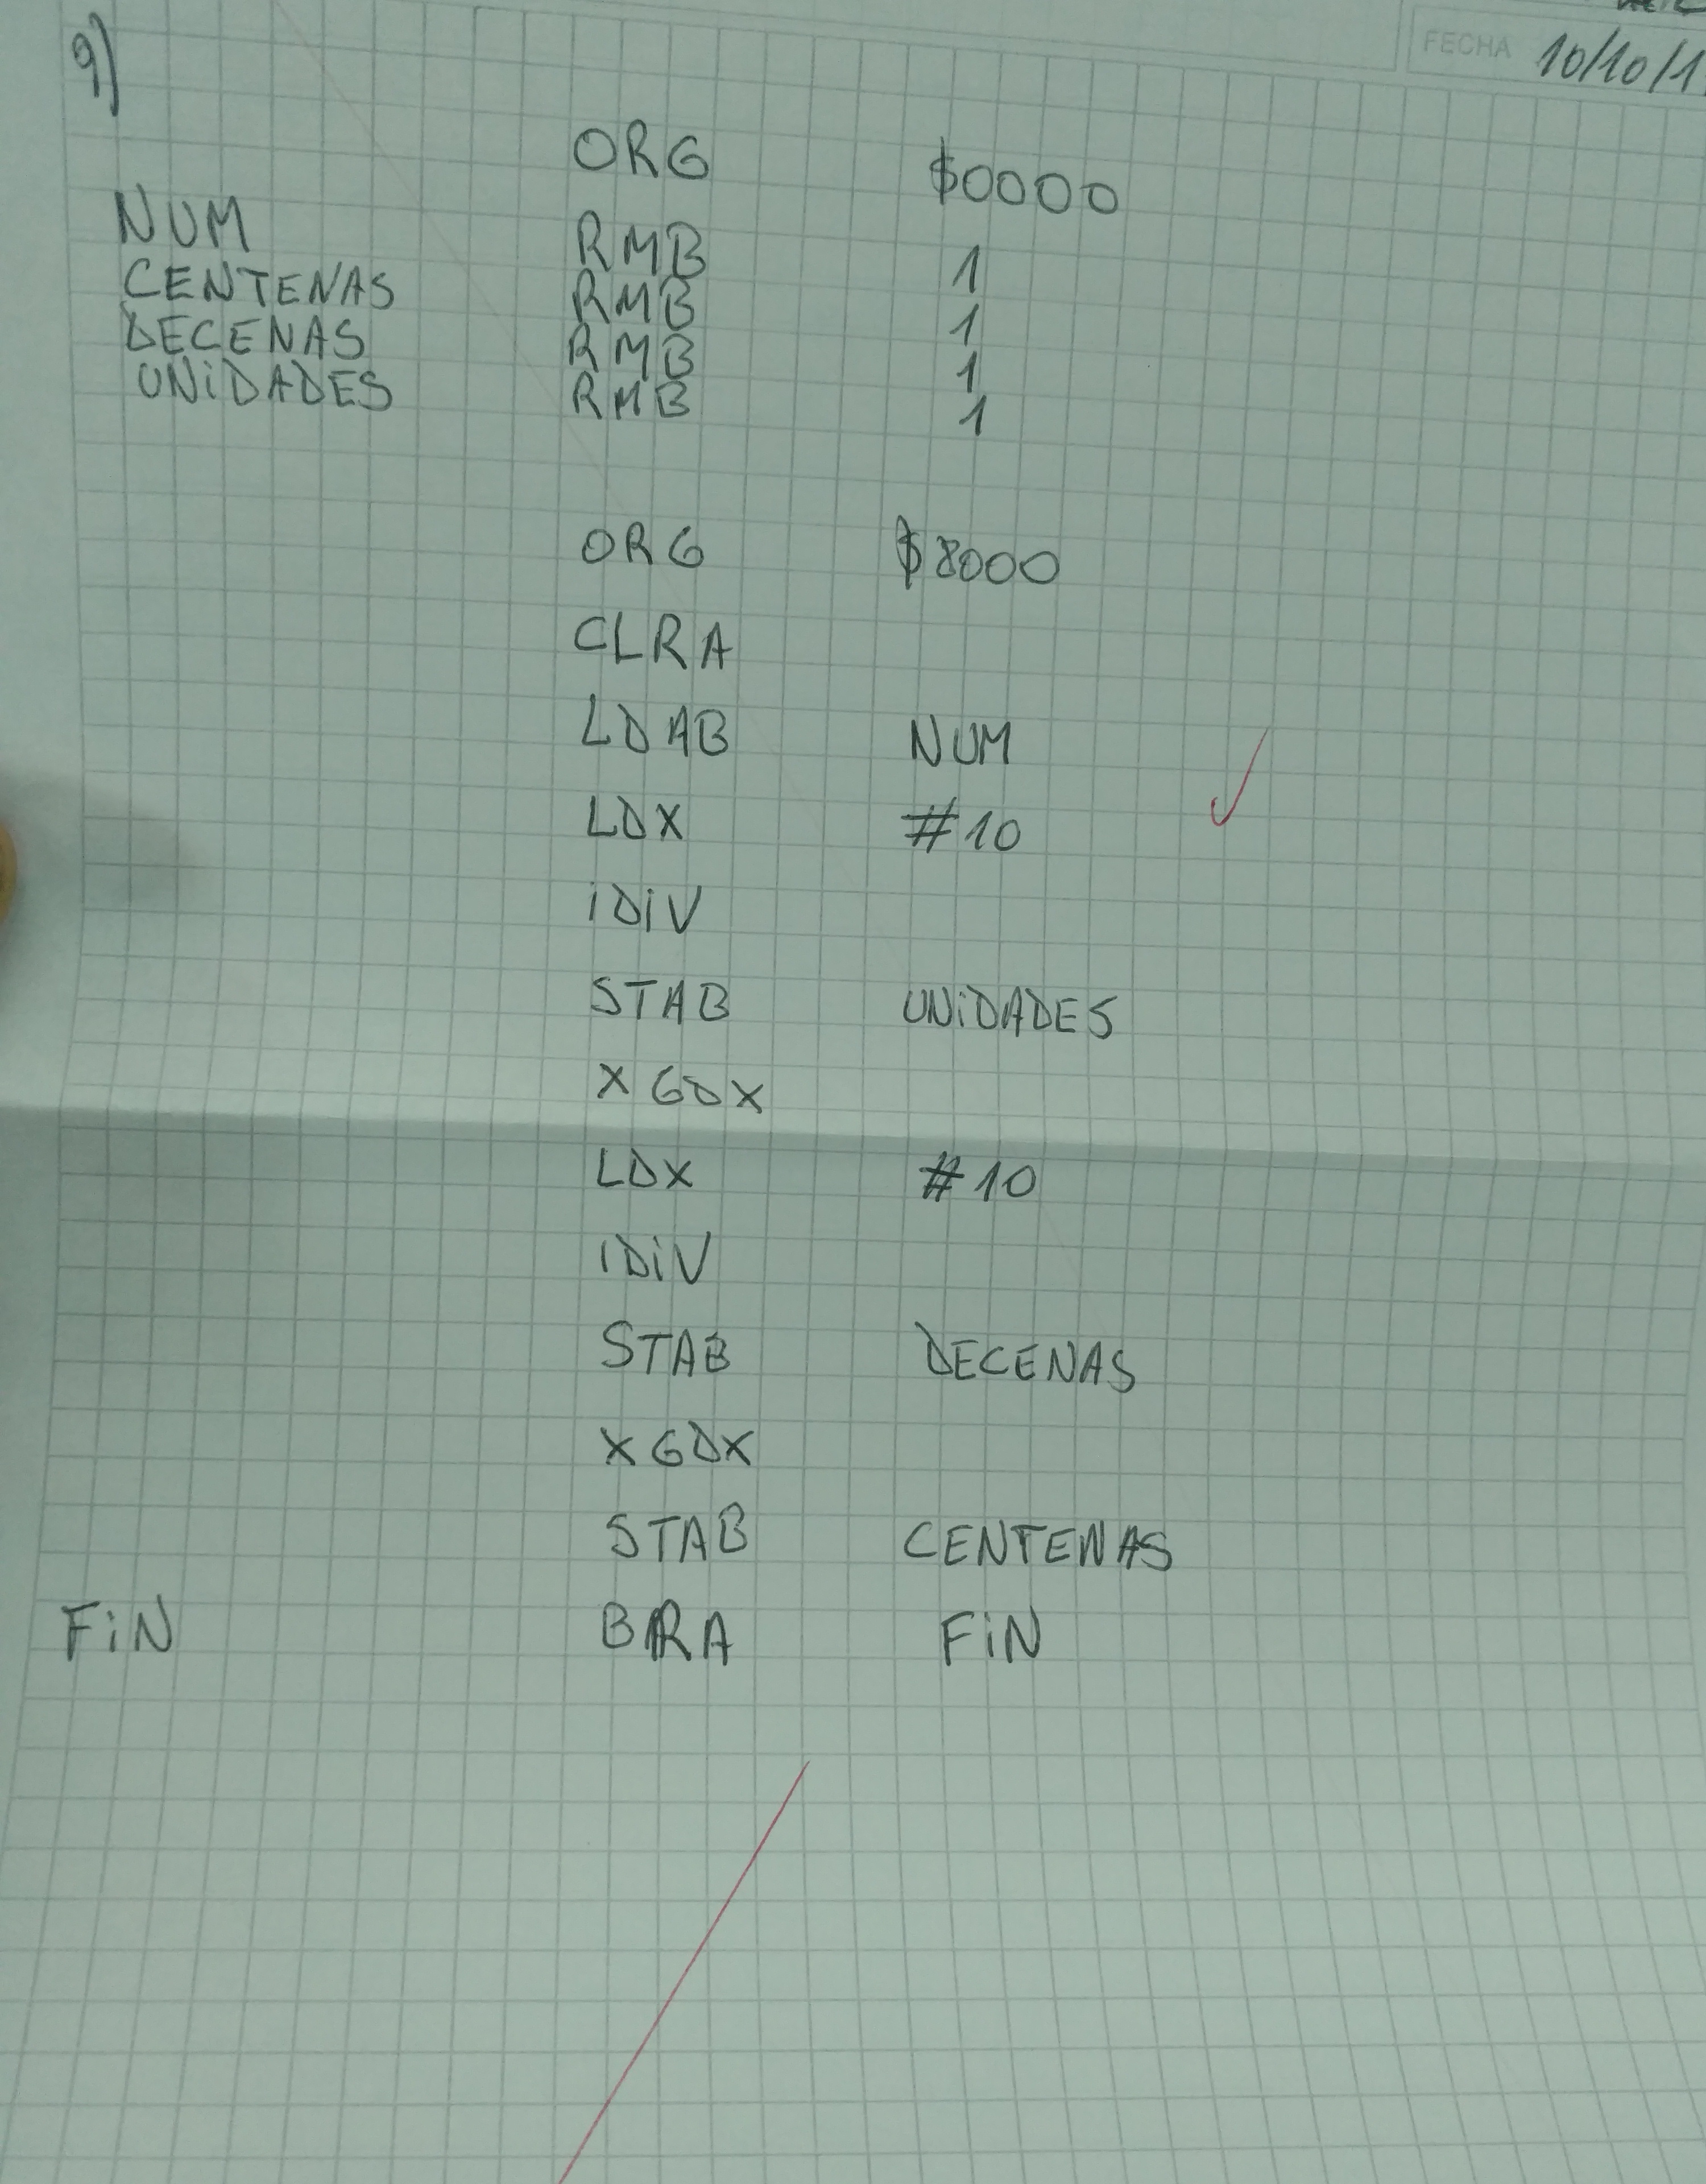 FECHA 10/10/1
9)
ORG $0000
NUM RMB 1
CENTENAS RMB 1
DECENAS RMB 1
UNiDADES RMB 1
ORG $8000
CLRA
LDAB NUM
LDX #10
iDiV
STAB UNiDADES
XGDX
LDX #10
IDiV
STAB DECENAS
XGDX
STAB CENTENAS
FiN BRA FiN